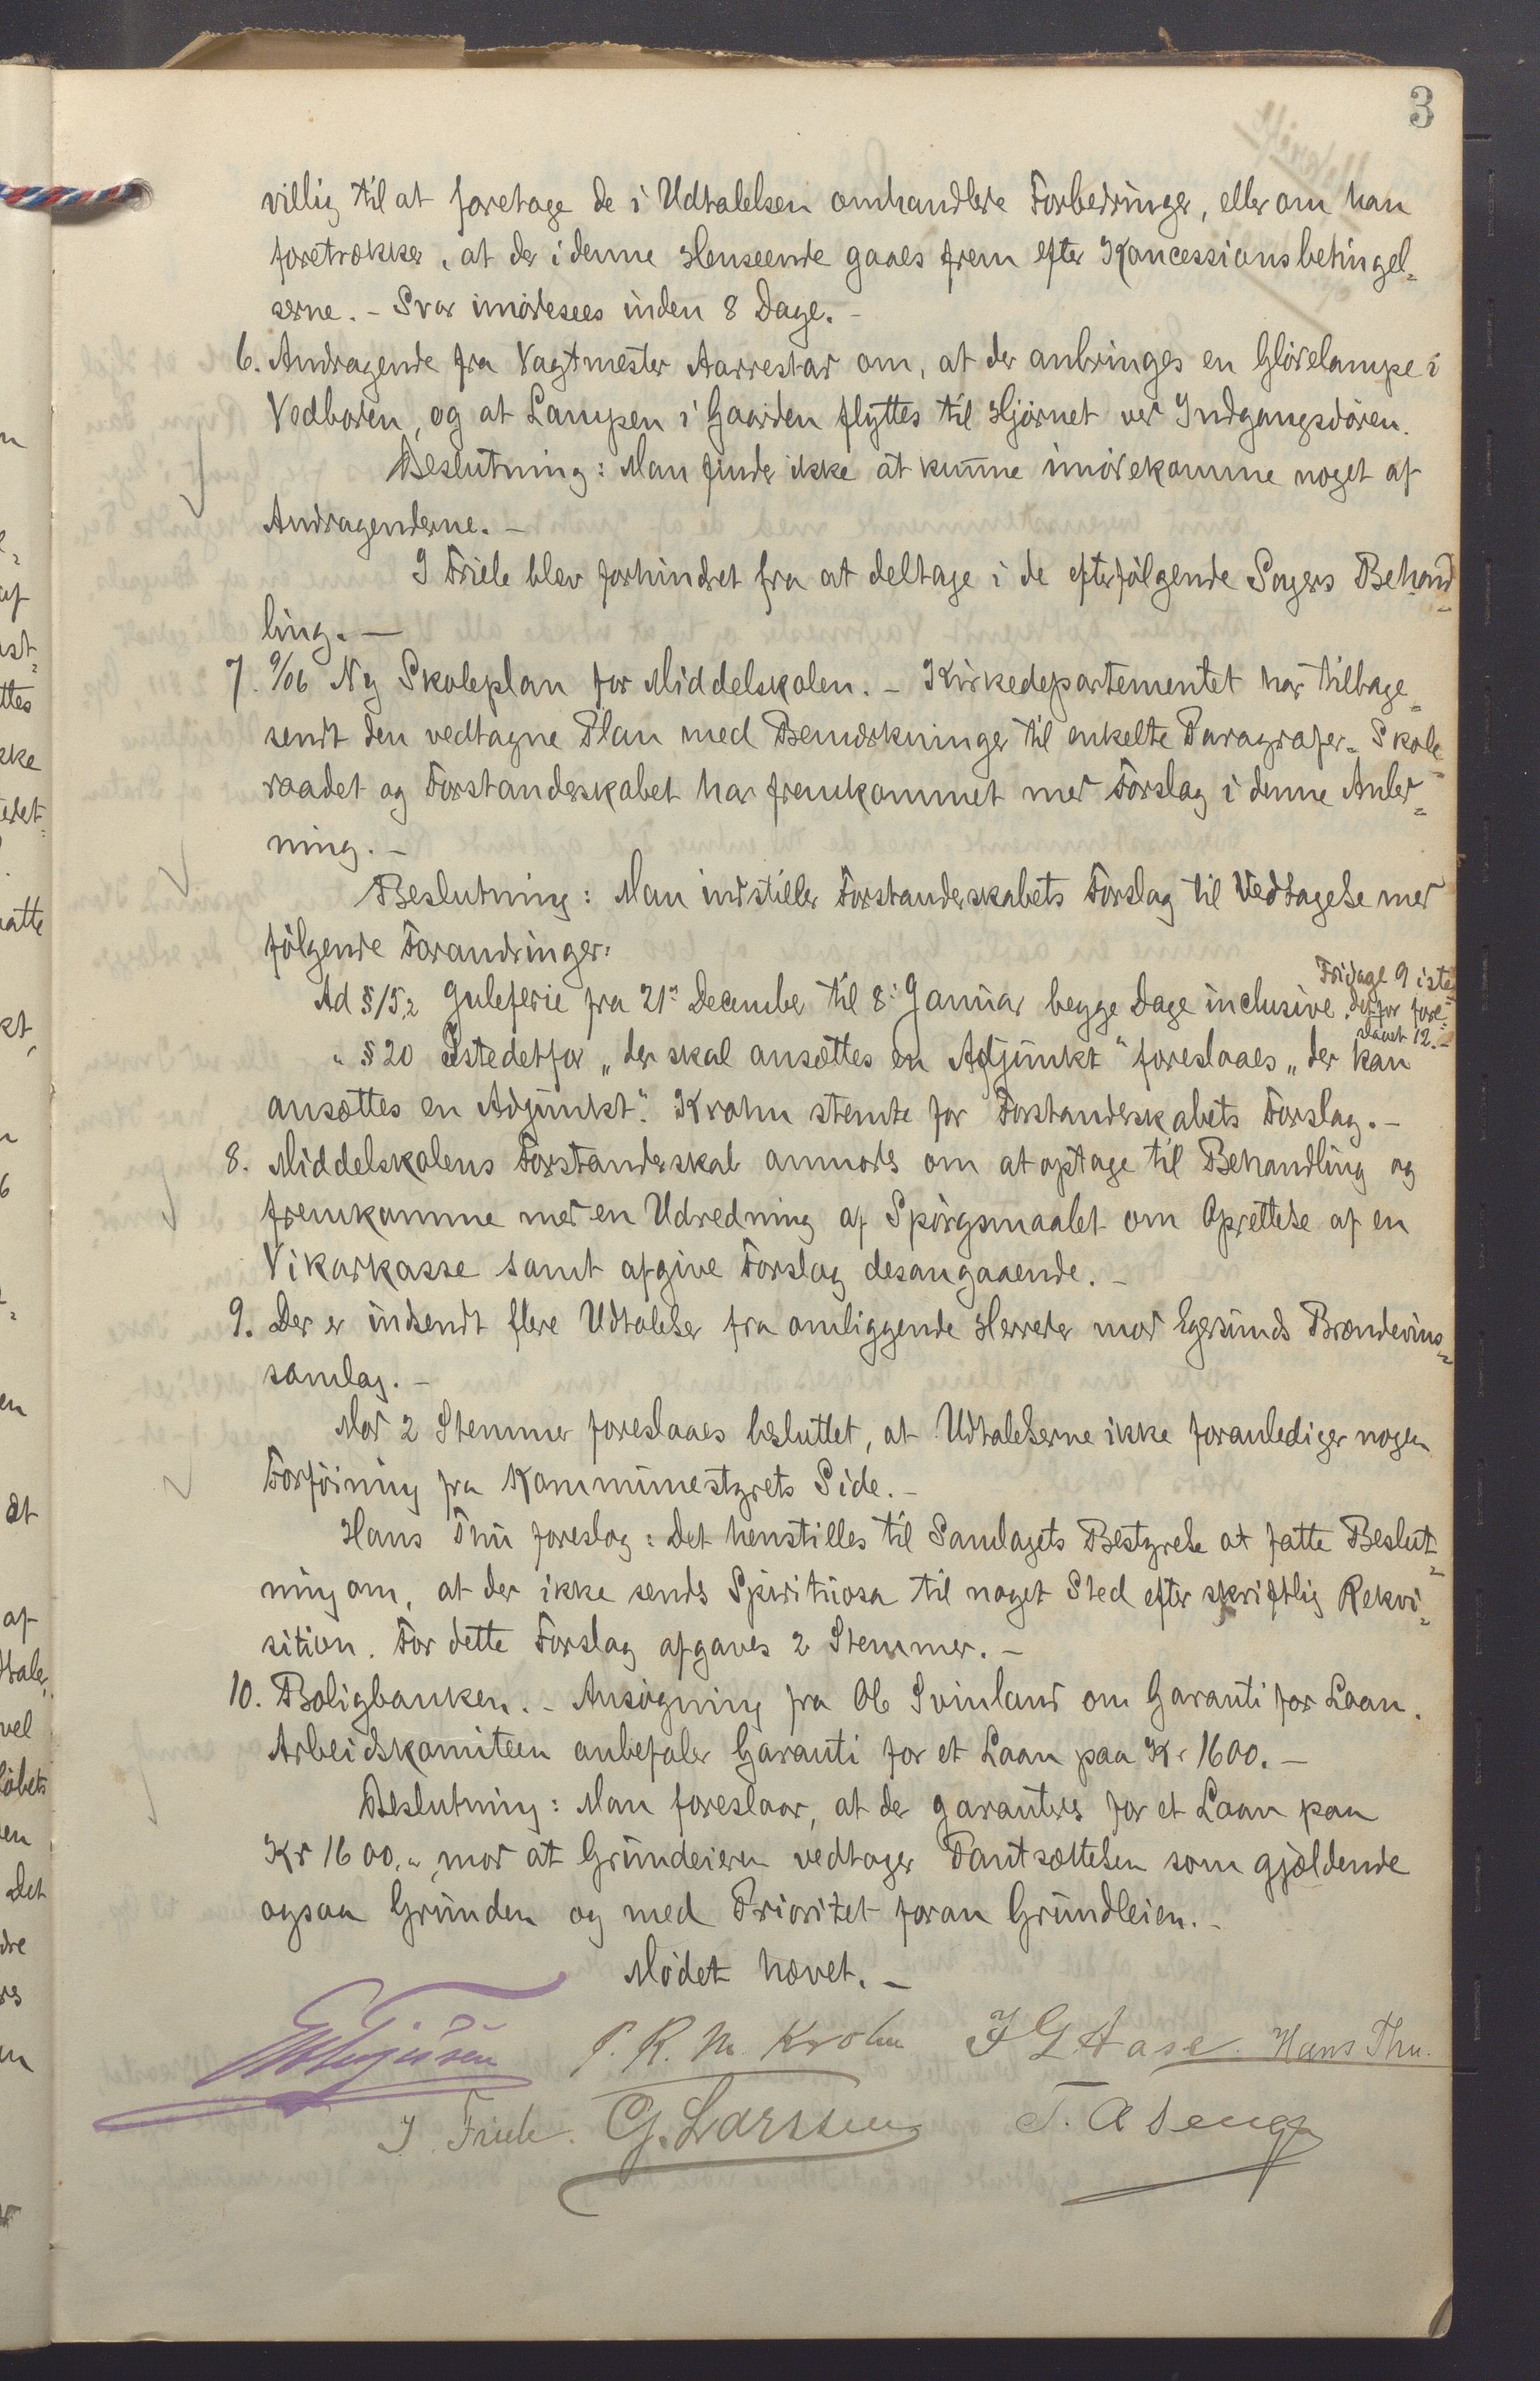 3
villig til at foretage de i Udtalelsen omhandlede Forbedringer, eller om han
foretrækker, at der i denne Henseende gaaes frem efter Koncessionsbetingel-
serne. - Svar imødesees inden 8 Dage. -
6. Andragende fra Vagtmester Aarrestad om, at der anbringes en Glødelampe i
Vedboden, og at Lampen i Gaarden flyttes til Hjørnet ved Indgangsdøren.
Beslutning: Man finder ikke at kunne imødekomme noget af
Andragenderne. -
I Friele blev forhindret fra at deltage i de efterfølgende Sagers Behand-
ling. -
7. 9/06 Ny Skoleplan for Middelskolen. - Kirkedepartementet har tilbage-
sendt den vedtagne Plan med Bemærkninger til enkelte Paragrafer. Skole-
raadet og Forstanderskabet har fremkommet med Forslag i denne Anled-
ning. -
Beslutning: Man indstiller Forstanderskabets Forslag til Vedtagelse med
følgende Forandringer:
Ad § 15,2 Juleferie fra 21de December til 8: Januar begge Dage inclusive. Fridage 9 iste-
detfor fore-
slaaet 12. -
" § 20 Istedetfor "der skal ansættes en Adjunkt" foreslaaes "der kan
ansættes en Adjunkt". Krohn stemte for Forstanderskabets Forslag. -
8. Middelskolens Forstanderskab anmodes om at optage til Behandling og
fremkomme med en Udredning af Spørgsmaalet om Oprettelse af en
Vikarkasse samt afgive Forslag desangaaende. -
9. Der er indsendt flere Udtalelser fra omliggende Herreder mod Egersunds Brændevins-
samlag. -
Mod 2 Stemmer foreslaaes besluttet, at Udtalelserne ikke foranlediger nogen
Forføining fra Kommunestyrets Side. -
Hans Thu foreslog: Det henstilles til Samlagets Bestyrelse at fatte Beslut-
ning om, at der ikke sendes Spirituosa til noget Sted efter skriftlig Rekvi-
sition. For dette Forslag afgaves 2 Stemmer. -
10. Boligbanken. - Ansøgning fra Ole Svinland om Garanti for Laan.
Arbeidskomiteen anbefaler Garanti for et Laan paa Kr 1600. -
Beslutning: Man foreslaar, at der garanteres for et Laan paa
Kr 1600." mod at Grundeieren vedtager Pantsættelsen som gjældende
ogsaa Grunden og med Prioritet foran Grundleien. -
Mødet hævet. -
P. R. M. Krohn I G Aase. Hans Thu.
I. Friele. G. Larssen T. Aseng